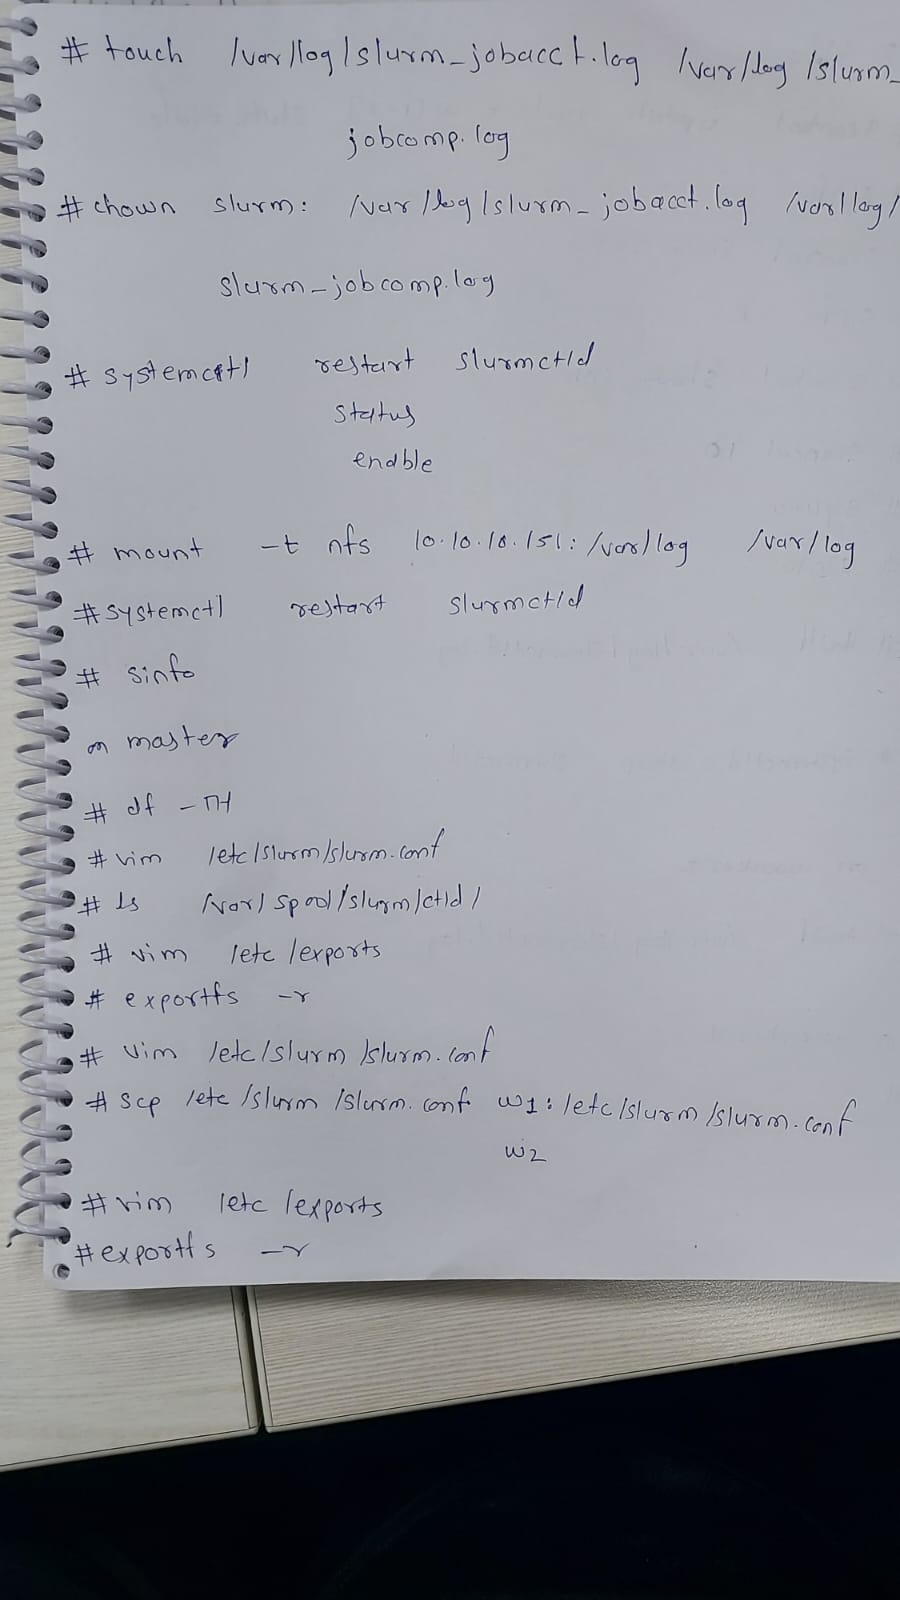 # touch /var/log/slurm_jobacct.log /var/log/slurm_
jobcomp.log
# chown slurm: /var/log/slurm_jobacct.log /var/log/
slurm_jobcomp.log
# systemctl restart slurmctld
status
enable
# mount -t nfs 10.10.10.151:/var/log /var/log
# systemctl restart slurmctld
# sinfo
on master
# df -TH
# vim /etc/slurm/slurm.conf
# ls /var/spool/slurm/ctld/
# vim /etc/exports
# exportfs -r
# vim /etc/slurm/slurm.conf
# scp /etc/slurm/slurm.conf w1:/etc/slurm/slurm.conf
w2
# vim /etc/exports
# exportfs -r